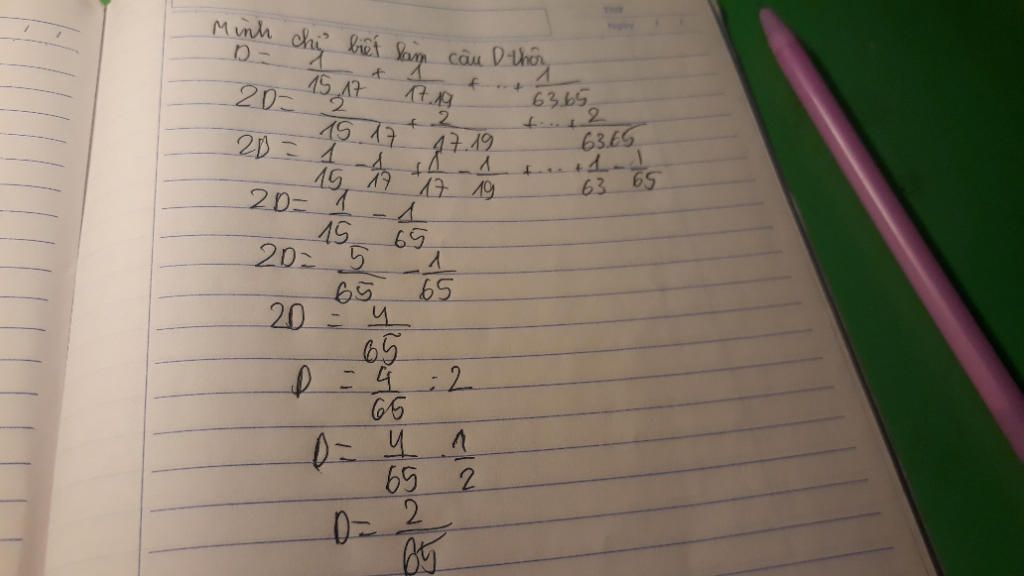 Mình chỉ biết làm câu D thôi
D = 1/15.17 + 1/17.19 + ... + 1/63.65
2D = 2/15.17 + 2/17.19 + ... + 2/63.65
2D = 1/15 - 1/17 + 1/17 - 1/19 + ... + 1/63 - 1/65
2D = 1/15 - 1/65
2D = 5/65 - 1/65
2D = 4/65
D = 4/65 : 2
D = 4/65 . 1/2
D = 2/65